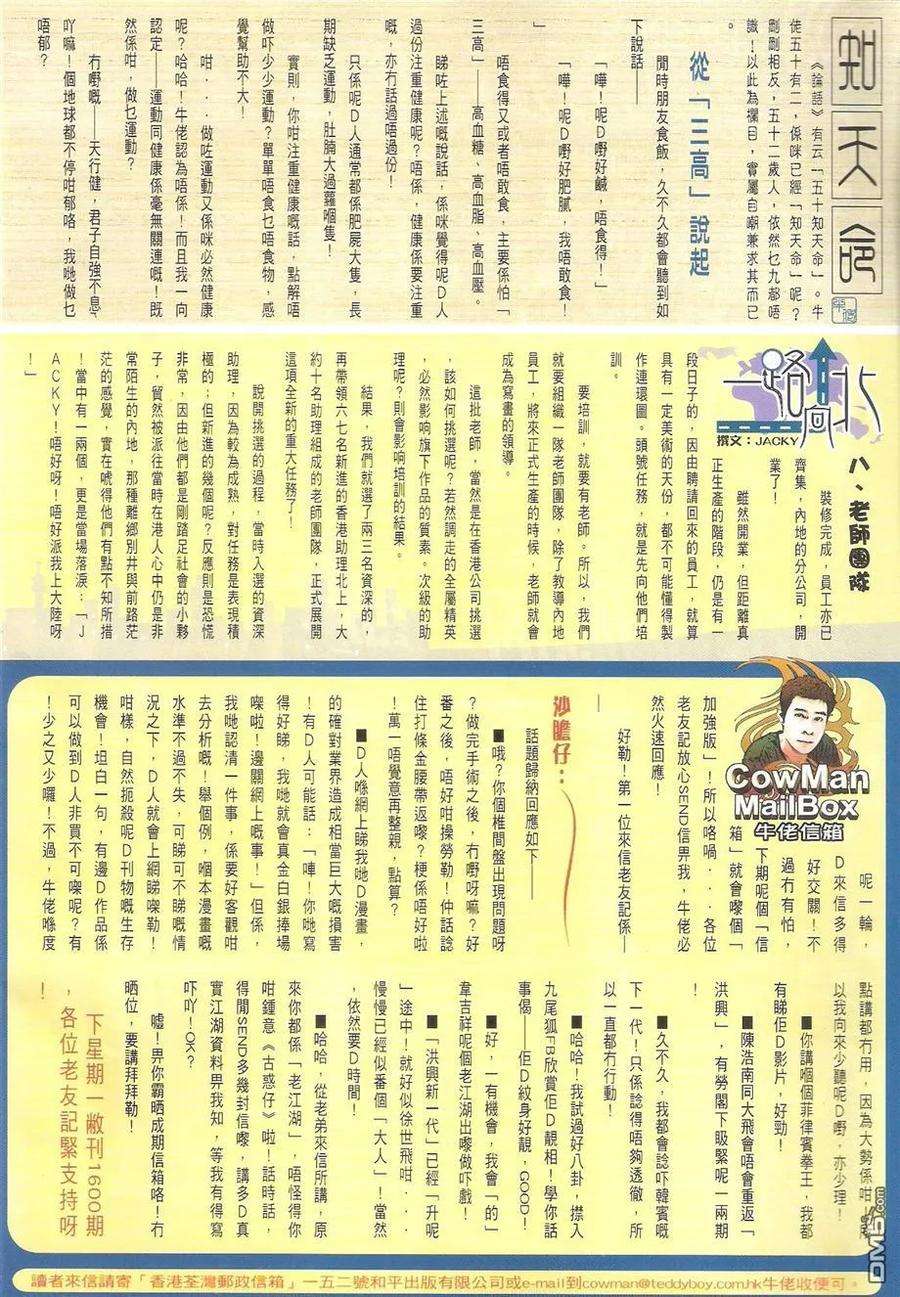 知天命
《論語》有云「五十知天命」。牛
佬五十有二，係咪已經「知天命」呢？
剛剛相反，五十二歲人，依然乜九都唔
識！以此為欄目，實屬自嘲兼求其而已
。
從「三高」說起
閒時朋友食飯，久不久都會聽到如
下說話——
「嘩！呢D嘢好鹹，唔食得！」
「嘩！呢D嘢好肥膩，我唔敢食！
」
唔食得又或者唔敢食，主要係怕「
三高」——高血糖、高血脂、高血壓。
睇咗上述嘅說話，係咪覺得呢D人
過份注重健康呢？唔係，健康係要注重
嘅，亦冇話過唔過份！
只係呢D人通常都係肥屍大隻，長
期缺乏運動，肚腩大過籮嗰隻！
實則，你咁注重健康嘅話，點解唔
做吓少少運動？單單唔食乜唔食物，感
覺幫助不大！
咁．．做咗運動又係咪必然健康
呢？哈哈！牛佬認為唔係！而且我一向
認定——運動同健康係毫無關連嘅！既
然係咁，做乜運動？
冇嘢嘅——天行健，君子自強不息
吖嘛！個地球都不停咁郁咯，我哋做乜
唔郁？
一路向北
撰文：JACKY
八、老師團隊
裝修完成，員工亦已
齊集，內地的分公司，開
業了！
雖然開業，但距離真
正生產的階段，仍是有一
段日子的，因由聘請回來的員工，就算
具有一定美術的天份，都不可能懂得製
作連環圖。頭號任務，就是先向他們培
訓。
要培訓，就要有老師。所以，我們
就要組織一隊老師團隊，除了教導內地
員工，將來正式生產的時候，老師就會
成為寫畫的領導。
這批老師，當然是在香港公司挑選
，該如何挑選呢？若然調走的全屬精英
，必然影響旗下作品的質素。次級的助
理呢？則會影響培訓的結果。
結果，我們就選了兩三名資深的，
再帶領六七名新進的香港助理北上，大
約十名助理組成的老師團隊，正式展開
這項全新的重大任務了！
說開挑選的過程，當時入選的資深
助理，因為較為成熟，對任務是表現積
極的；但新進的幾個呢？反應則是恐慌
非常，因由他們都是剛踏足社會的小夥
子，貿然被派往當時在港人心中仍是非
常陌生的內地，那種離鄉別井與前路茫
茫的感覺，實在唬得他們有點不知所措
！當中有一兩個，更是當場落淚：「J
ACKY！唔好呀！唔好派我上大陸呀
！」
CowMan
MailBox
牛佬信箱
呢一輪，
D來信多得
好交關！不
過冇有怕，
下期呢個「信
箱」就會嚟個「
加強版」！所以咯喎．．各位
老友記放心SEND信畀我，牛佬必
然火速回應！
好勒！第一位來信老友記係—
—
沙膽仔：
話題歸納回應如下——
■哦？你個椎間盤出現問題呀
？做完手術之後，冇嘢呀嘛？好
番之後，唔好咁操勞勒！仲話諗
住打條金腰帶返嚟？梗係唔好啦
！萬一唔覺意再整親，點算？
■D人喺網上睇我哋D漫畫，
的確對業界造成相當巨大嘅損害
！有D人可能話：「唓！你哋寫
得好睇，我哋就會真金白銀捧場
㗎啦！邊關網上嘅事！」但係，
我哋認清一件事，係要好客觀咁
去分析嘅！舉個例，嗰本漫畫嘅
水準不過不失，可睇可不睇嘅情
況之下，D人就會上網睇㗎勒！
咁樣，自然扼殺呢D刊物嘅生存
機會！坦白一句，有邊D作品係
可以做到D人非買不可㗎呢？有
！少之又少囉！不過，牛佬喺度
點講都冇用，因為大勢係咁
以我向來少聽呢D嘢，亦少理！
■你講嗰個菲律賓拳王，我都
有睇佢D影片，好勁！
■陳浩南同大飛會唔會重返「
洪興」，有勞閣下吸緊呢一兩期
！
■久不久，我都會諗吓韓賓嘅
下一代！只係諗得唔夠透徹，所
以一直都冇行動！
■哈哈！我試過好八卦，㩒入
九尾狐FB欣賞佢D靚相！學你話
事偈——佢D紋身好靚，GOOD！
■好，一有機會，我會「的」
韋吉祥呢個老江湖出嚟做吓戲！
■「洪興新一代」已經「升呢
」途中！就好似徐世飛咁．．
慢慢已經似番個「大人」！當然
，依然要D時間！
■哈哈，從老弟來信所講，原
來你都係「老江湖」，唔怪得你
咁鍾意《古惑仔》啦！話時話，
得閒SEND多幾封信嚟，講多D真
實江湖資料畀我知，等我有得寫
吓吖！OK？
噓！畀你霸晒成期信箱咯！冇
晒位，要講拜拜勒！
下星期一敝刊1600期
，各位老友記緊支持呀
！
讀者來信請寄「香港荃灣郵政信箱」一五二號和平出版有限公司或e-mail到cowman@teddyboy.com.hk牛佬收便可。
DM5.com